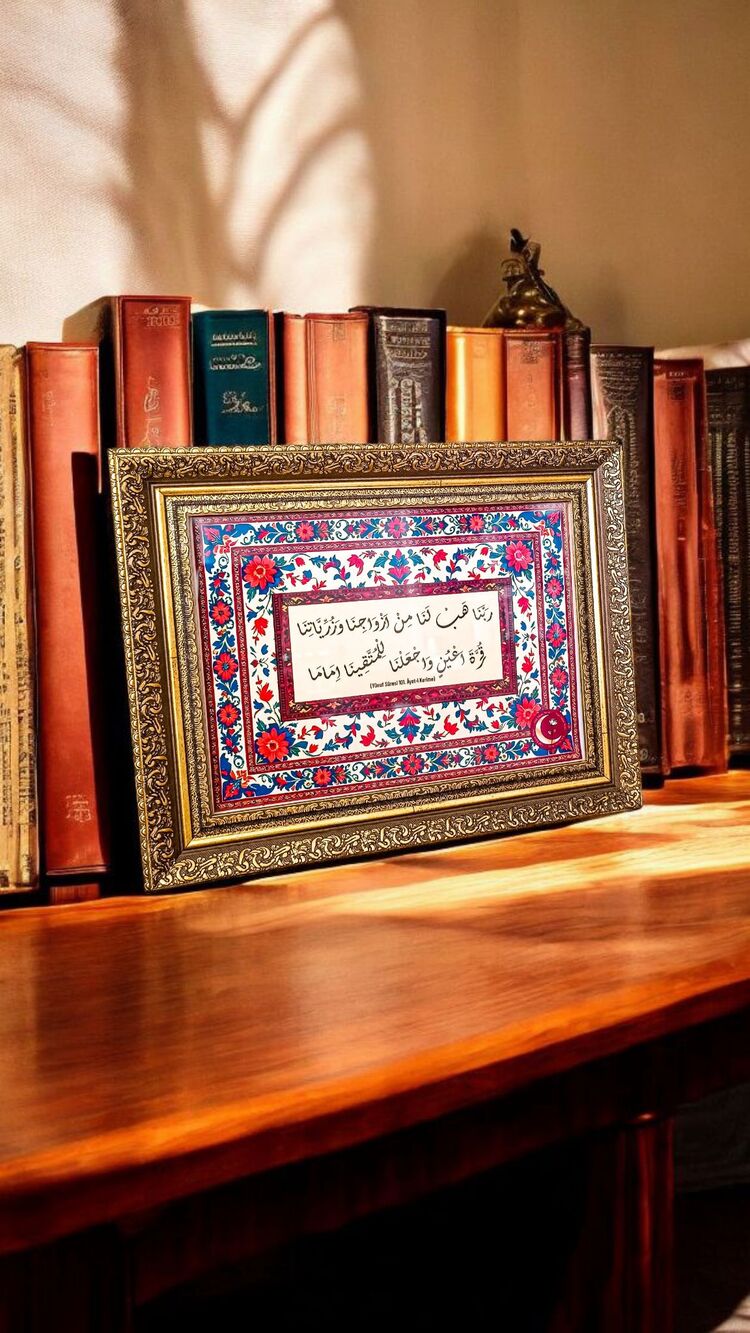 رَبَّنَا هَبْ لَنَا مِنْ اَزْوَاجِنَا وَذُرِّيَّاتِنَا
قُرَّةَ اَعْيُنٍ وَاجْعَلْنَا لِلْمُتَّقِينَا اِمَامَا
(Yûsuf Sûresi 101. Âyet-i Kerîme)